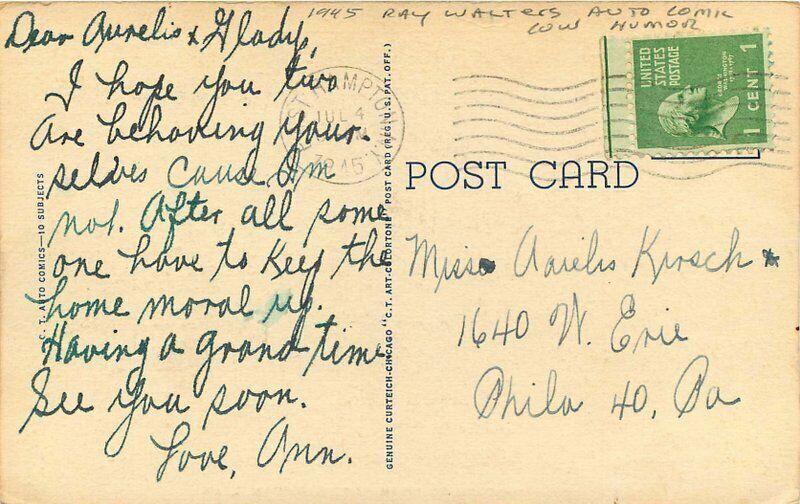 1945 RAY WALTERS AUTO COMIC
LOW HUMOR
Dear Aurelis & Glady,
I hope you two
are behaving your-
selves cause Im
not. After all some
one have to keep the
home moral up.
Having a grand time
See you soon.
Love, Ann.
C. T. AUTO COMICS—10 SUBJECTS
GENUINE CURTEICH-CHICAGO "C. T. ART-COLORTONE" POST CARD (REG. U. S. PAT. OFF.)
HAMPTON
JUL 4
1945
UNITED STATES POSTAGE
GEORGE WASHINGTON
1 CENT 1
POST CARD
Miss Aurelis Kirsch
1640 W. Erie
Phila 40, Pa